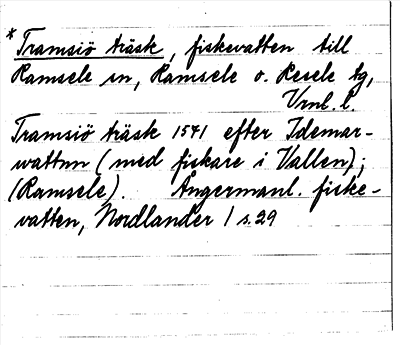 *Tramsiö träsk, fiskevatten till
Ramsele sn, Ramsele o. Resele tg,
Vrnl. l.
Tramsiö träsk 1541 efter Idemar-
wattnn (med fiskare i Vallen);
(Ramsele). Ångermanl. fiske-
vatten, Nordlander 1 s. 29